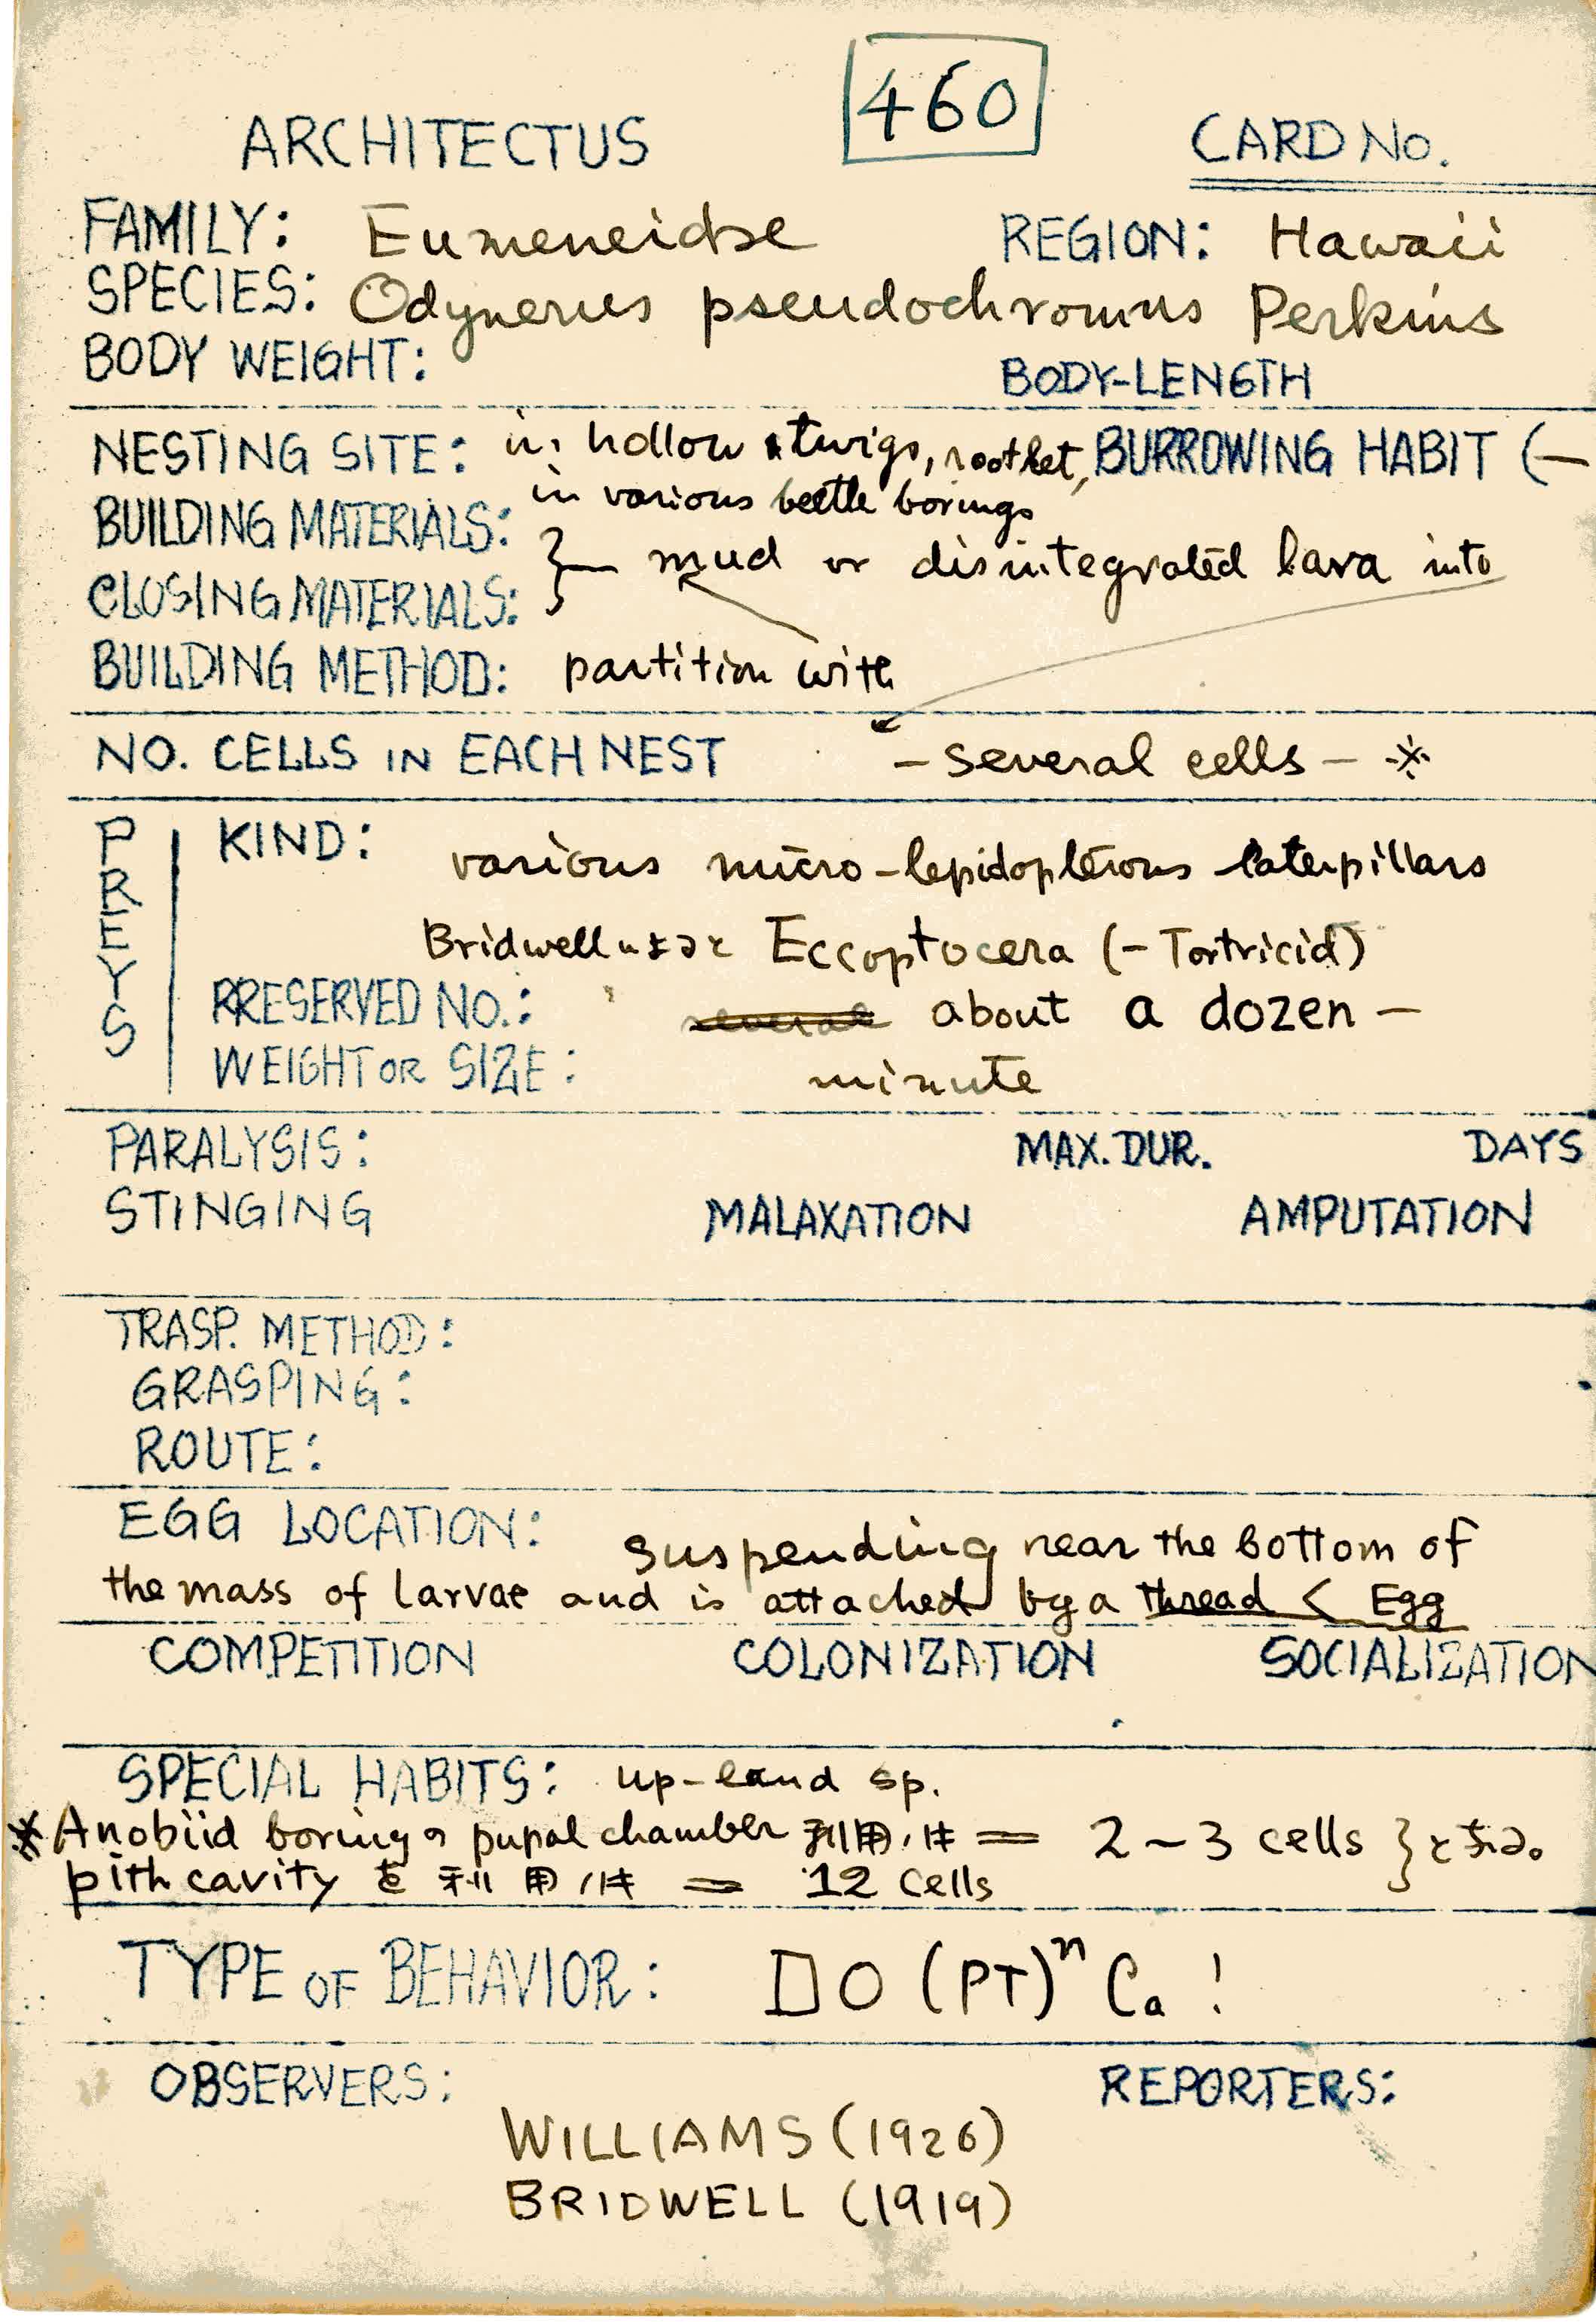 460
ARCHITECTUS CARD No.
FAMILY: Eumeneidae REGION: Hawaii
SPECIES: Odynerus pseudochromus Perkins
BODY WEIGHT: BODY-LENGTH
NESTING SITE: in hollow twigs, rootlet, BURROWING HABIT (−
in various beetle borings
BUILDING MATERIALS:
} mud or disintegrated lava into
CLOSING MATERIALS:
BUILDING METHOD: partition with
NO. CELLS IN EACH NEST - several cells - ※
PREYS
KIND: various micro-lepidopterous caterpillars
Bridwell によると Eccoptocera (- Tortricid)
RRESERVED NO.: several about a dozen -
WEIGHT OR SIZE: minute
PARALYSIS: MAX. DUR. DAYS
STINGING MALAXATION AMPUTATION
TRASP. METHOD:
GRASPING:
ROUTE:
EGG LOCATION: suspending near the bottom of
the mass of larvae and is attached by a thread < Egg
COMPETITION COLONIZATION SOCIALIZATION
SPECIAL HABITS: up-land sp.
※ Anobiid boring の pupal chamber 利用ハ = 2~3 cells } とする。
pith cavity を利用ハ = 12 cells
TYPE OF BEHAVIOR: DO (PT)ⁿ Ca !
OBSERVERS: REPORTERS:
WILLIAMS (1926)
BRIDWELL (1919)